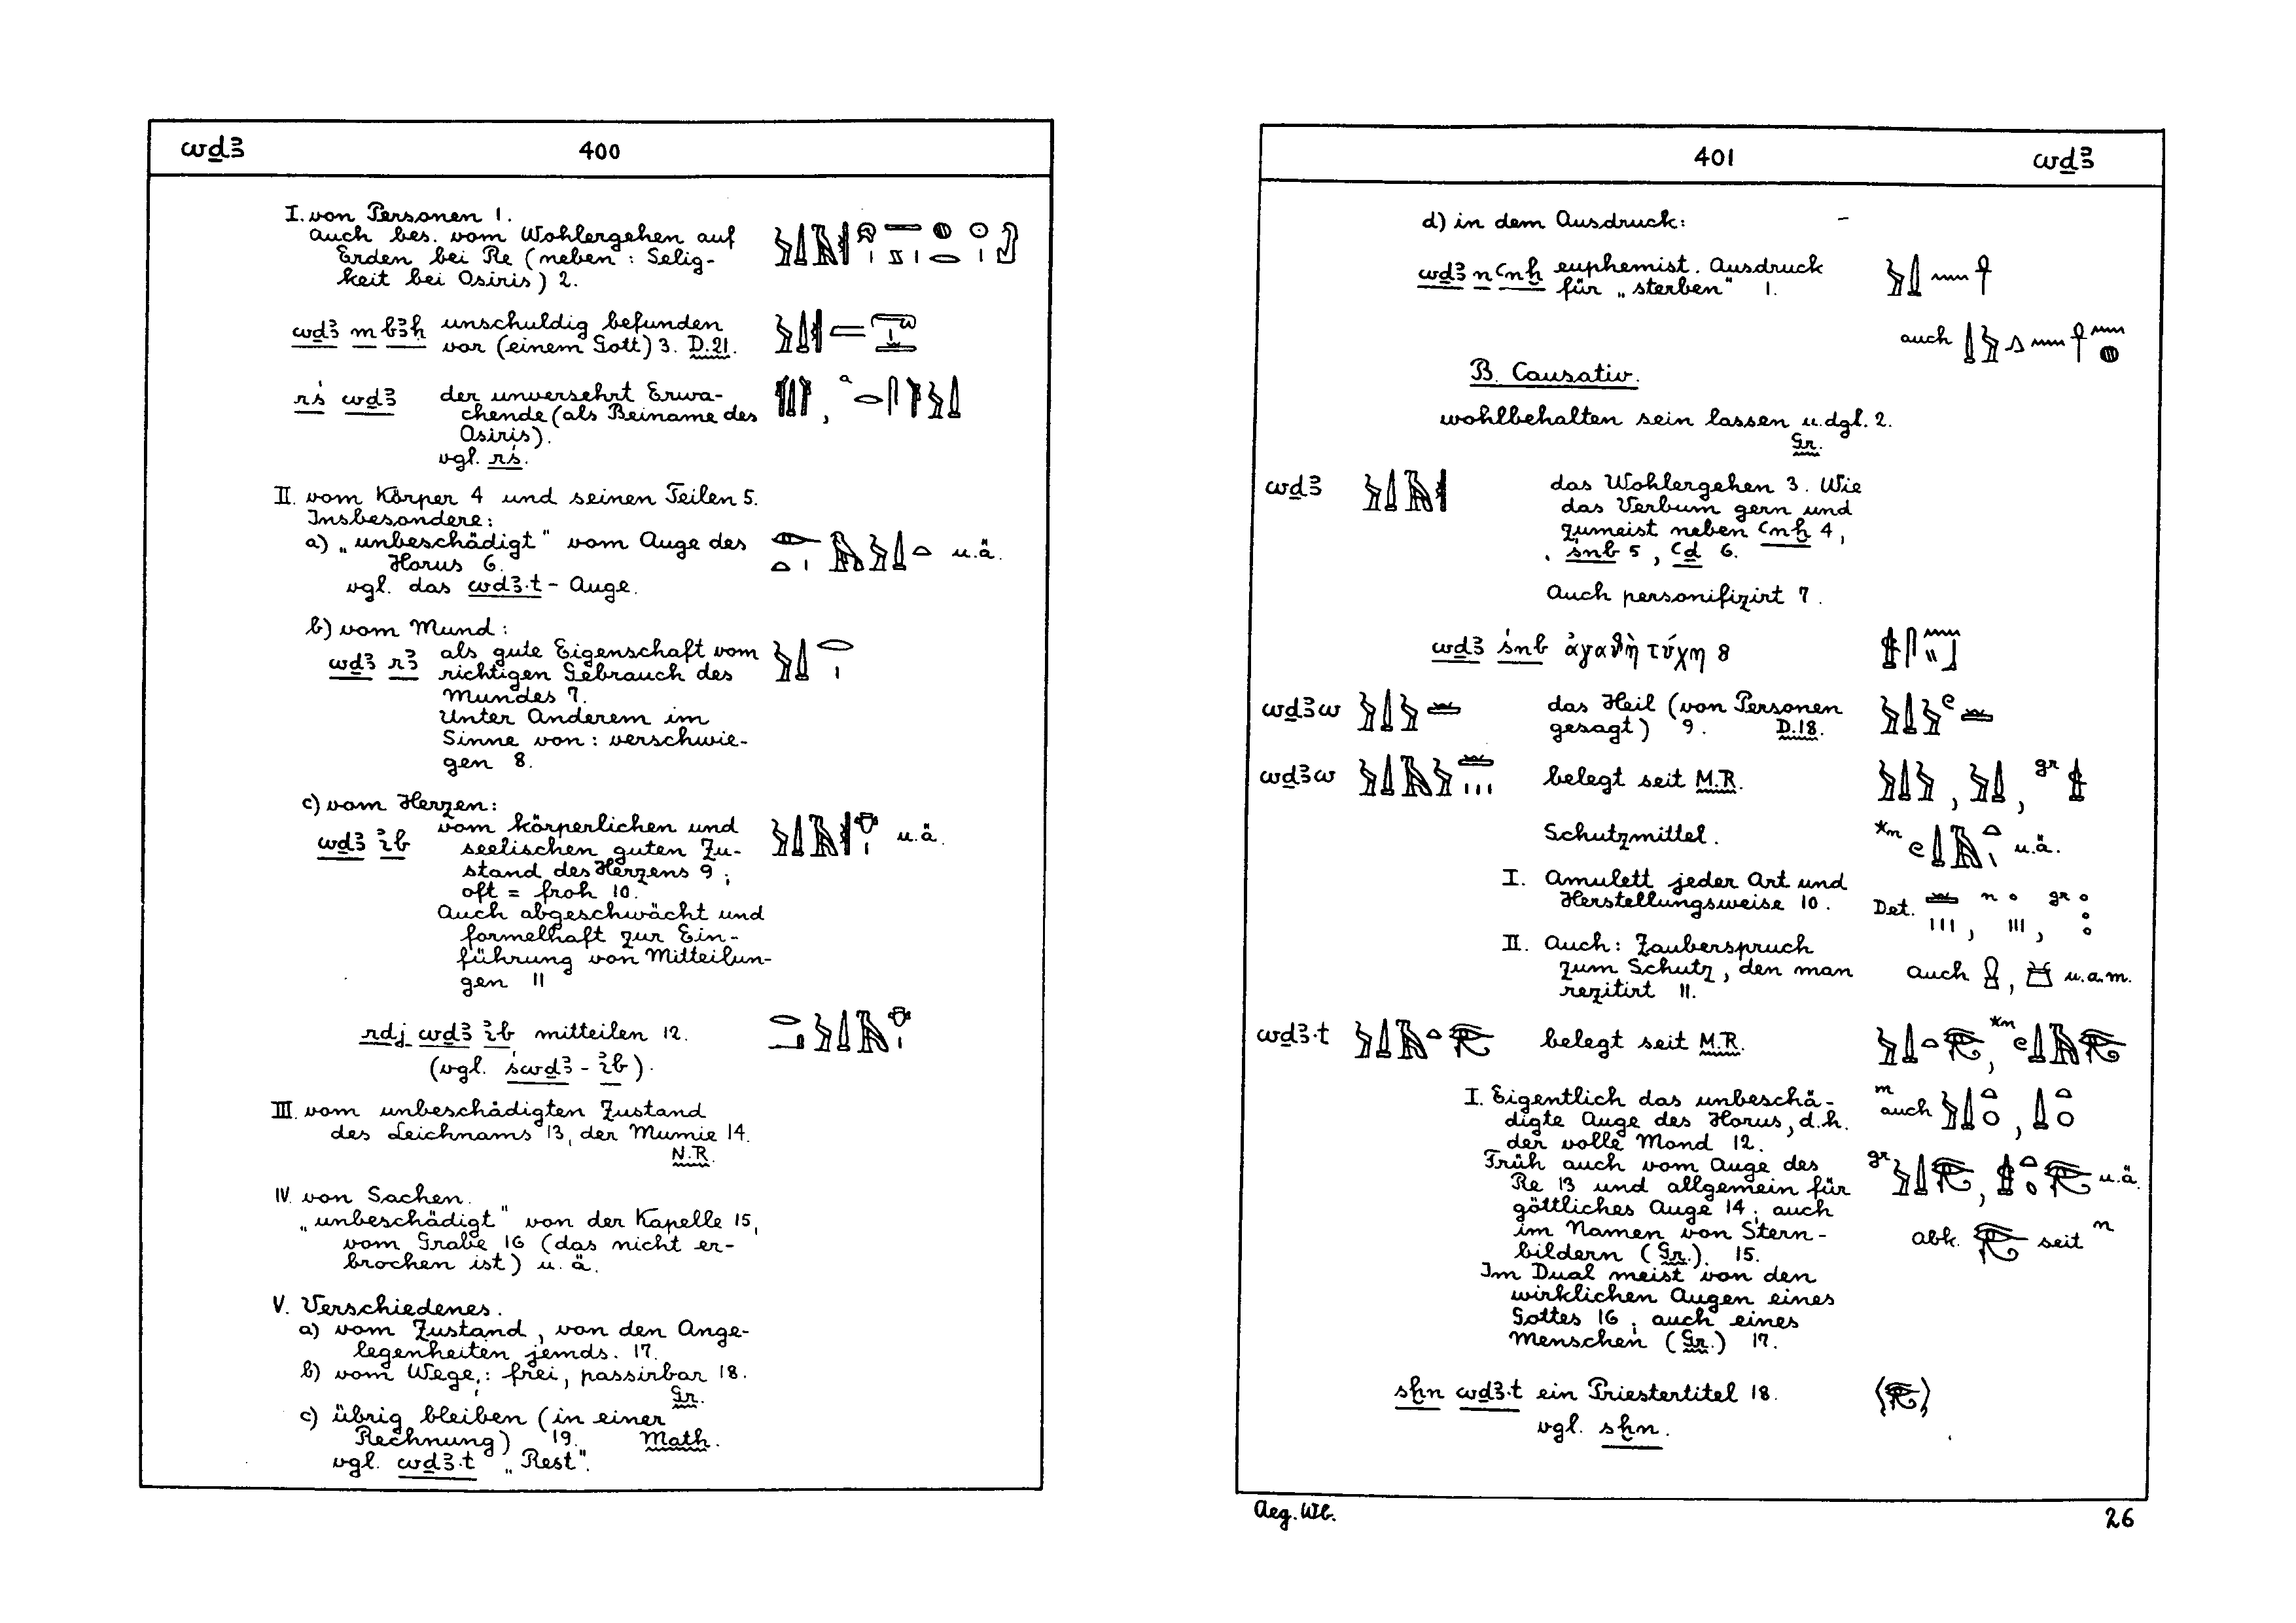 wḏꜣ 400
I. von Personen 1.
auch bes. vom Wohlergehen auf
Erden bei Re (neben : Selig-
keit bei Osiris) 2.
wḏꜣ m bꜣḥ unschuldig befunden
vor (einem Gott) 3. D.21.
rś wḏꜣ der unversehrt Erwa-
chende (als Beiname des
Osiris).
vgl. rś.
II. vom Körper 4 und seinen Teilen 5.
Insbesondere:
a) „unbeschädigt" vom Auge des u.ä.
Horus 6.
vgl. das wḏꜣ.t - Auge.
b) vom Mund:
wḏꜣ rꜣ als gute Eigenschaft vom
richtigen Gebrauch des
Mundes 7.
Unter Anderem im
Sinne von : verschwie-
gen 8.
c) vom Herzen:
wḏꜣ ꞽb vom körperlichen und u.ä.
seelischen guten Zu-
stand des Herzens 9 ;
oft = froh 10.
Auch abgeschwächt und
formelhaft zur Ein-
führung von Mitteilun-
gen 11
rdj wḏꜣ ꞽb mitteilen 12.
(vgl. śwḏꜣ - ꞽb).
III. vom unbeschädigten Zustand
des Leichnams 13, der Mumie 14.
N.R.
IV. von Sachen.
„unbeschädigt" von der Kapelle 15,
vom Grabe 16 (das nicht er-
brochen ist) u. ä.
V. Verschiedenes.
a) vom Zustand, von den Ange-
legenheiten jemds. 17.
b) vom Wege,: frei, passirbar 18.
Gr.
c) übrig bleiben (in einer
Rechnung) 19. Math.
vgl. wḏꜣ.t „Rest".
401 wḏꜣ
d) in dem Ausdruck:
wḏꜣ n ꜥnḫ euphemist. Ausdruck
für „sterben" 1.
auch
B. Causativ.
wohlbehalten sein lassen u.dgl. 2.
Gr.
wḏꜣ das Wohlergehen 3. Wie
das Verbum gern und
zumeist neben ꜥnḫ 4,
śnb 5, ꜥḏ 6.
Auch personifizirt 7.
wḏꜣ śnb ἀγαθὴ τύχη 8
wḏꜣw das Heil (von Personen
gesagt) 9. D.18.
wḏꜣw belegt seit M.R. , , gr
Schutzmittel. *m u.ä.
I. Amulett jeder Art und
Herstellungsweise 10. Det. , n , gr
II. Auch: Zauberspruch
zum Schutz, den man auch , u.a.m.
rezitirt 11.
wḏꜣ.t belegt seit M.R. , *m
I. Eigentlich das unbeschä- m
digte Auge des Horus, d.h. auch ,
der volle Mond 12.
Früh auch vom Auge des gr , u.ä.
Re 13 und allgemein für
göttliches Auge 14; auch
im Namen von Stern- abk. seit n
bildern (Gr.). 15.
Im Dual meist von den
wirklichen Augen eines
Gottes 16; auch eines
Menschen (Gr.) 17.
sḫn wḏꜣ.t ein Priestertitel 18.
vgl. sḫn.
Aeg. Wb. 26